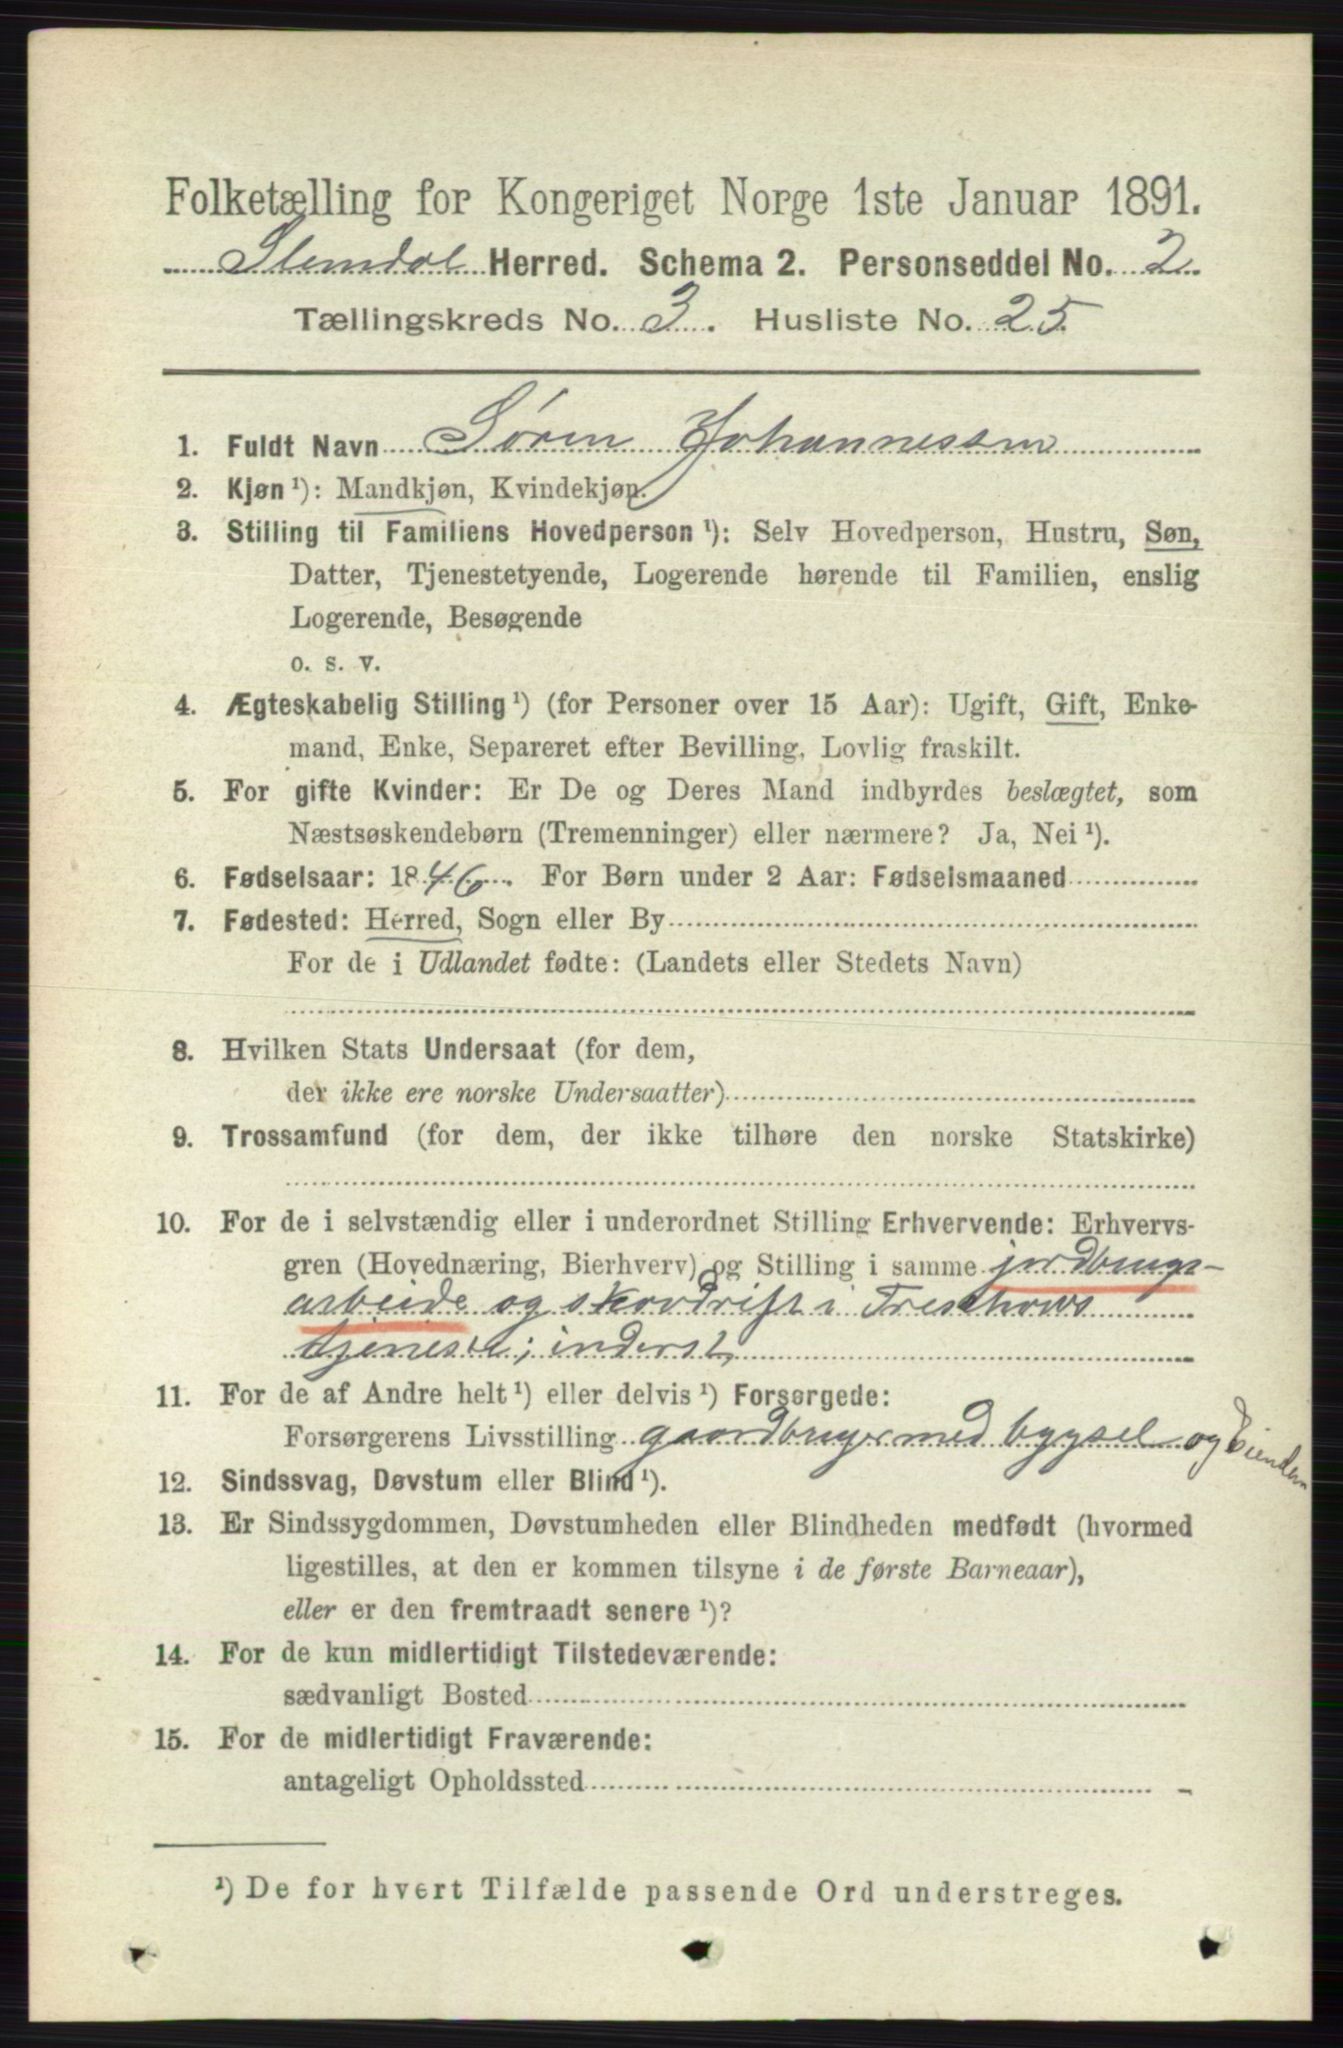 Folketælling for Kongeriget Norge 1ste Januar 1891.
Slemdal Herred. Schema 2. Personseddel No. 2.
Tællingskreds No. 3. Husliste No. 25.
1. Fuldt Navn Søren Johannessen
2. Kjøn ¹): Mandkjøn, Kvindekjøn.
3. Stilling til Familiens Hovedperson ¹): Selv Hovedperson, Hustru, Søn,
Datter, Tjenestetyende, Logerende hørende til Familien, enslig
Logerende, Besøgende
o. s. v.
4. Ægteskabelig Stilling ¹) (for Personer over 15 Aar): Ugift, Gift, Enke-
mand, Enke, Separeret efter Bevilling, Lovlig fraskilt.
5. For gifte Kvinder: Er De og Deres Mand indbyrdes beslægtet, som
Næstsøskendebørn (Tremenninger) eller nærmere? Ja, Nei ¹).
6. Fødselsaar: 1846. For Børn under 2 Aar: Fødselsmaaned
7. Fødested: Herred, Sogn eller By
For de i Udlandet fødte: (Landets eller Stedets Navn)
8. Hvilken Stats Undersaat (for dem,
der ikke ere norske Undersaatter)
9. Trossamfund (for dem, der ikke tilhøre den norske Statskirke)
10. For de i selvstændig eller i underordnet Stilling Erhvervende: Erhvervs-
gren (Hovednæring, Bierhverv) og Stilling i samme jordbrugs-
arbeide og skovdrift i Treschows
tjeneste; inderst
11. For de af Andre helt ¹) eller delvis ¹) Forsørgede:
Forsørgerens Livsstilling gaardbruger med bygsel og Eiendom
12. Sindssvag, Døvstum eller Blind ¹).
13. Er Sindssygdommen, Døvstumheden eller Blindheden medfødt (hvormed
ligestilles, at den er kommen tilsyne i de første Barneaar),
eller er den fremtraadt senere ¹)?
14. For de kun midlertidigt Tilstedeværende:
sædvanligt Bosted
15. For de midlertidigt Fraværende:
antageligt Opholdssted
¹) De for hvert Tilfælde passende Ord understreges.